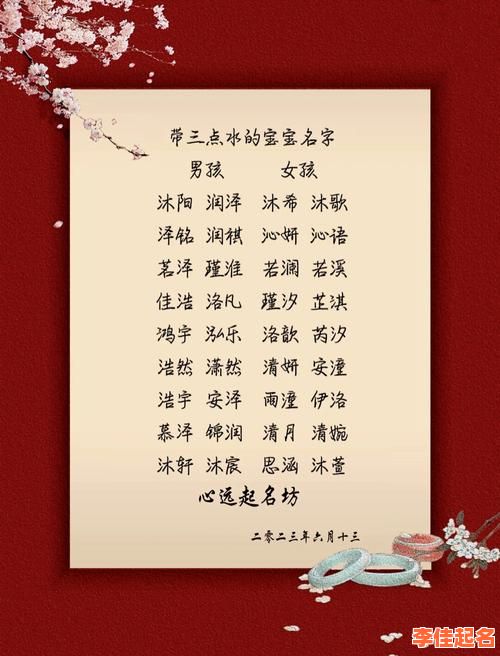 带三点水的宝宝名字
男孩 女孩
沐阳 润泽 沐希 沐歌
泽铭 润祺 沁妍 沁语
茗泽 瑾淮 若澜 若溪
佳浩 洛凡 瑾汐 芷淇
鸿宇 泓乐 洛歆 芮汐
浩然 潇然 清妍 安潼
浩宇 安泽 雨潼 伊洛
慕泽 锦润 清月 清婉
沐轩 沐宸 思涵 沐萱
心远起名坊
二零二三年六月十三
李佳起名